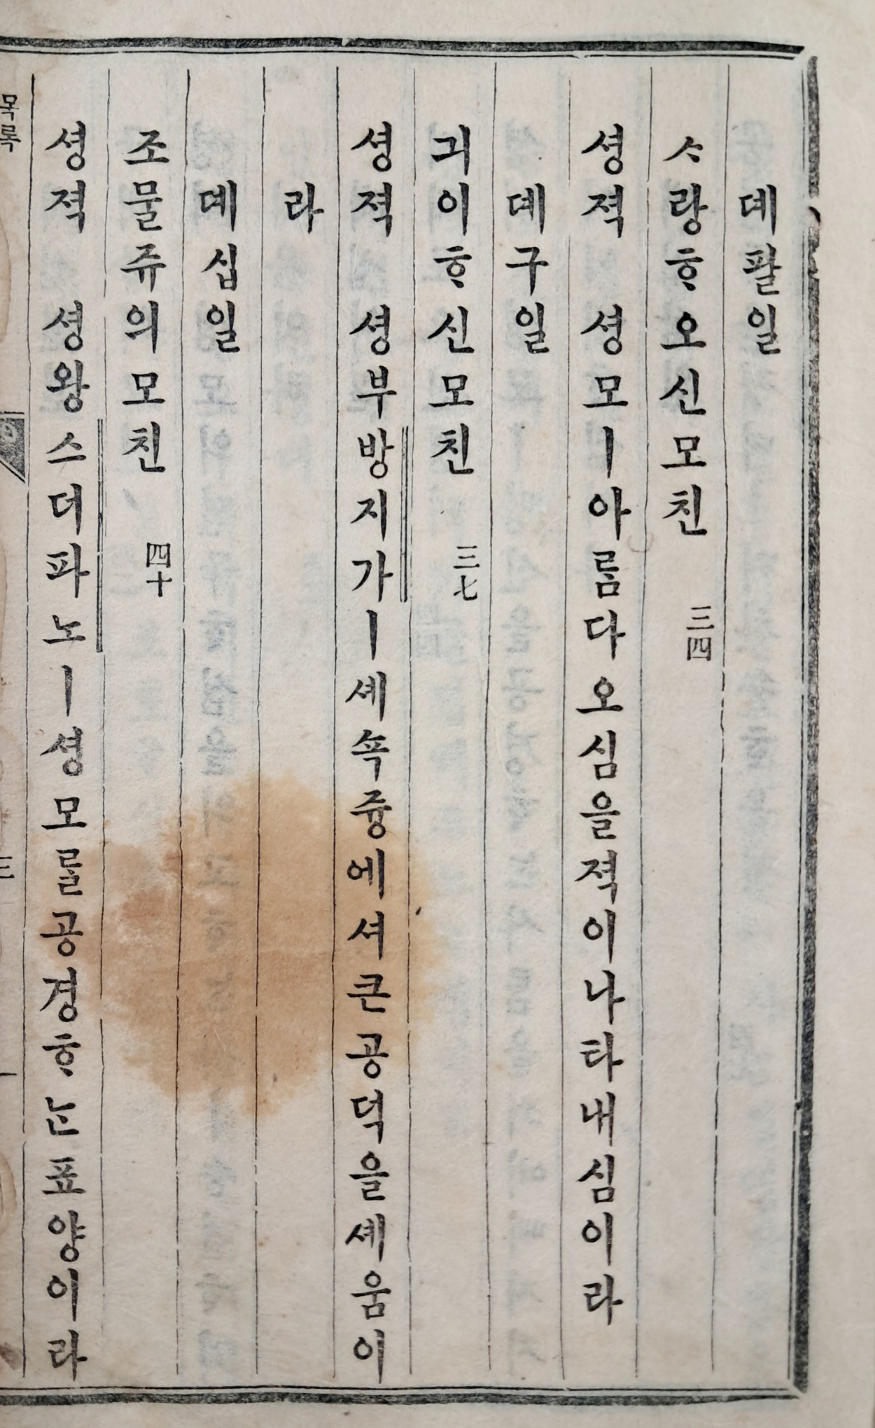 뎨팔일
ᄉᆞ랑ᄒᆞ오신모친 三四
셩젹 셩모ㅣ아름다오심을젹이나타내심이라
뎨구일
긔이ᄒᆞ신모친 三七
셩젹 셩부방지가ㅣ셰쇽즁에셔큰공덕을셰움이
라
뎨십일
조물쥬의모친 四十
셩젹 셩왕스더파노ㅣ셩모ᄅᆞᆯ공경ᄒᆞᄂᆞᆫ표양이라
목록
三